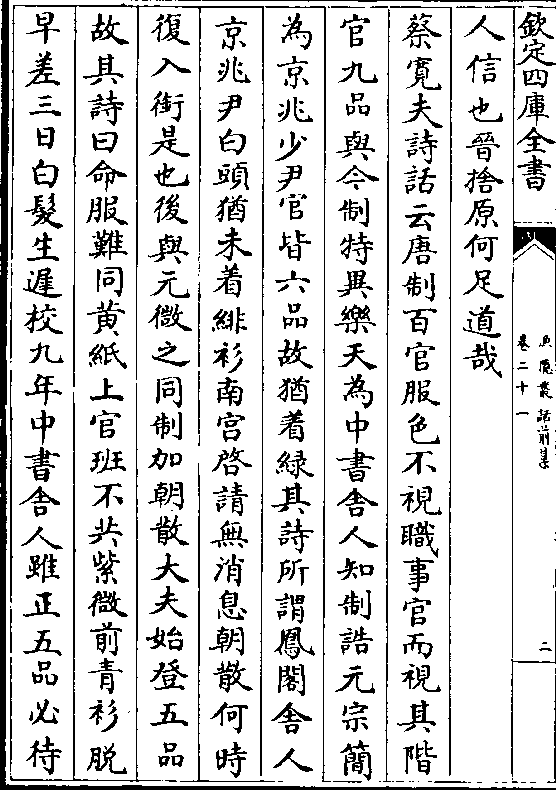 欽定四庫全書
漁隱叢話前集
卷二十一
二
人信也晉捨原何足道哉
蔡寛夫詩話云唐制百官服色不視職事官而視其階
官九品與今制特異樂天為中書舍人知制誥元宗簡
為京兆少尹官皆六品故猶着緑其詩所謂鳳閣舍人
京兆尹白頭猶未着緋衫南宮啓請無消息朝散何時
復入銜是也後與元微之同制加朝散大夫始登五品
故其詩曰命服難同黄紙上官班不共紫微前青衫脱
早差三日白髮生遲校九年中書舍人雖正五品必待